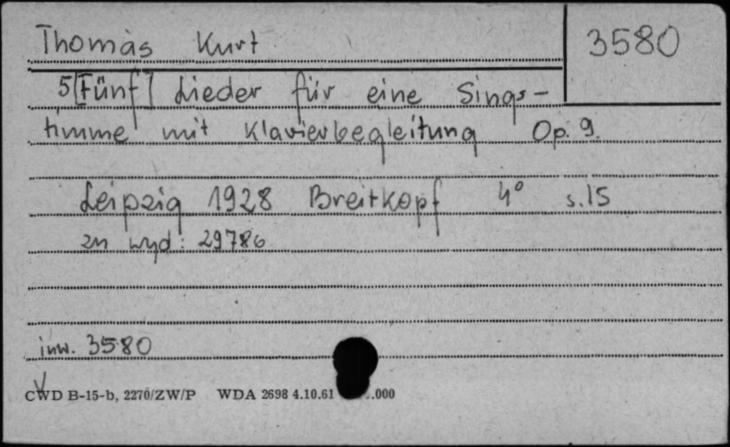 Thomas Kurt
3580
5 [Fünf] Lieder für eine Sings-
timme mit Klavierbegleitung Op. 9.
Leipzig 1928 Breitkopf 4° s. 15
zn wyd: 29786
inw. 3580
CWD B-15-b, 2270/ZW/P WDA 2698 4.10.61 .000